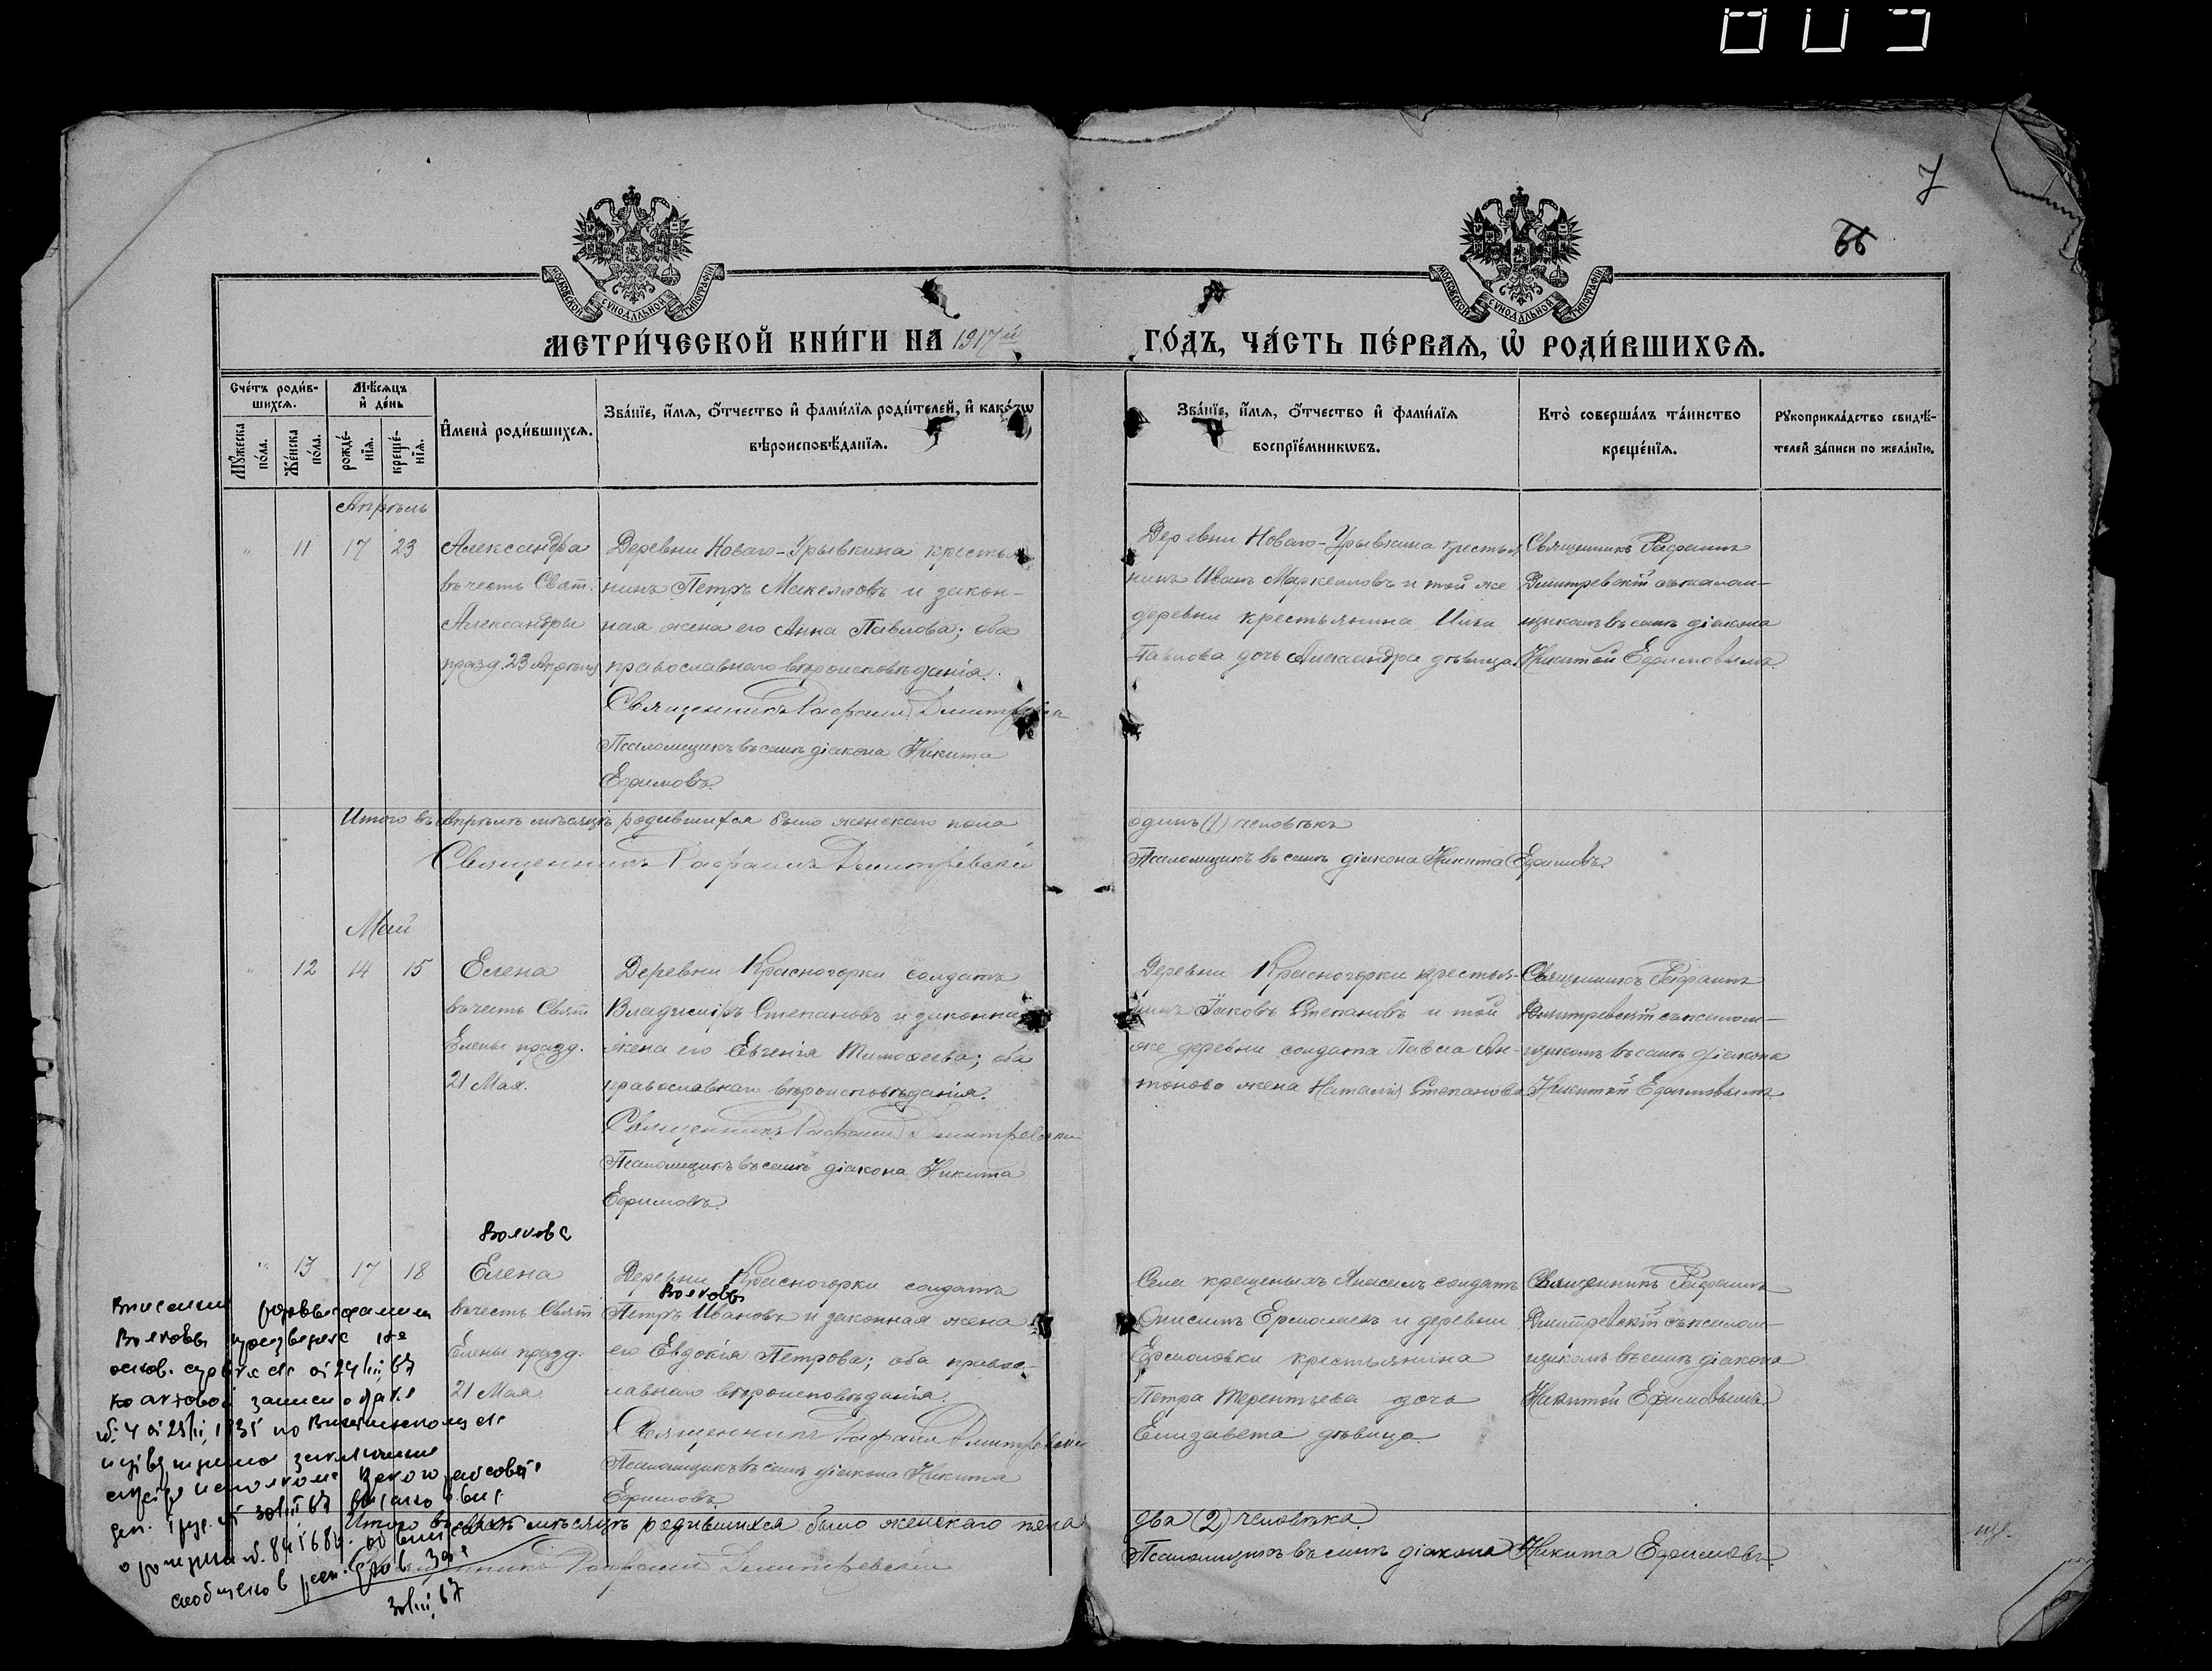 803
7
66
МОСКОВСКОЙ СѴНОДАЛЬНОЙ ТИПОГРАФІИ
МОСКОВСКОЙ СѴНОДАЛЬНОЙ ТИПОГРАФІИ
МЕТРИ́ЧЕСКОЙ КНИ́ГИ НА 1917й ГО́ДЪ, ЧА́СТЬ ПЕ́РВАѦ, Ѡ҆ РОДИ́ВШИХСѦ.
Сче́тъ роди́в-
шихсѧ.
Мѣ́сѧцъ
и҆ де́нь
Мꙋ́жеска
по́ла.
Же́нска
по́ла.
рожде́-
нїѧ.
креще́-
нїѧ.
И҆мена̀ роди́вшихсѧ.
Зва́нїе, и҆́мѧ, ѻ҆́тчество и҆ фами́лїѧ роди́телей, и҆ како́гѡ
вѣроисповѣ́данїѧ.
Зва́нїе, и҆́мѧ, ѻ҆́тчество и҆ фами́лїѧ
воспрїе́мникѡвъ.
Кто̀ соверша́лъ та́инство
креще́нїѧ.
Рꙋкоприкла́дство свидѣ́-
телей за́писи по жела́нїю.
Апрѣль
" 11 17 23
Александра
въ честь Свят.
Александры
празд. 23 Апрѣля
Деревни Новаго-Урывкина крестья-
нинъ Петръ Макелловъ и закон-
ная жена его Анна Павлова; оба
православнаго вѣроисповѣданія.
Священникъ Рафаилъ Димитревскій
Псаломщикъ въ санѣ діакона Никита
Ефимовъ.
Деревни Новаго-Урывкина крестья-
нинъ Иванъ Маркелловъ и той же
деревни крестьянина Ильи
Павлова дочь Александра дѣвица.
Священникъ Рафаилъ
Димитревскій съ псалом-
щикомъ въ санѣ діакона
Никитой Ефимовымъ.
Итого въ Апрѣлѣ мѣсяцѣ родившихся было женскаго пола один (1) человѣкъ
Священникъ Рафаилъ Димитревскій
Псаломщикъ въ санѣ діакона Никита Ефимовъ.
Май
" 12 14 15
Елена
въ честь Свят
Елены празд.
21 Мая.
Деревни Красногорки солдатъ
Владиміръ Степановъ и законная
жена его Евгенія Тимофеева; оба
православнаго вѣроисповѣданія.
Священникъ Рафаилъ Димитревскій
Псаломщикъ въ санѣ діакона Никита
Ефимовъ.
Деревни Красногорки крестья-
нинъ Іаковъ Степановъ и той
же деревни солдата Павла Ан-
тонова жена Наталія Степанова
Священникъ Рафаилъ
Димитревскій съ псалом-
щикомъ въ санѣ діакона
Никитой Ефимовымъ.
Волкова
" 13 17 18
Елена
въ честь Свят
Елены празд.
21 Мая
Деревни Красногорки солдатъ
Волковы
Петръ Ивановъ и законная жена
его Евдокія Петрова; оба правос-
лавнаго вѣроисповѣданія.
Священникъ Рафаилъ Димитревскій
Псаломщикъ въ санѣ діакона Никита
Ефимовъ.
Села крещеныхъ солдатъ
Онисимъ Ермолаевъ и деревни
Ермоловки крестьянина
Петра Терентьева дочь
Елизавета дѣвица.
Священникъ Рафаилъ
Димитревскій съ псалом-
щикомъ въ санѣ діакона
Никитой Ефимовымъ.
фамилии
Волковы произведена на
основ.
по актовой записи о браке
№ 4 от
заключения
30/III 67
сообщено в
30/III 67
Итого въ Маѣ мѣсяцѣ родившихся было женскаго пола два (2) человѣка.
Священникъ Рафаилъ Димитревскій
Псаломщикъ въ санѣ діакона Никита Ефимовъ.